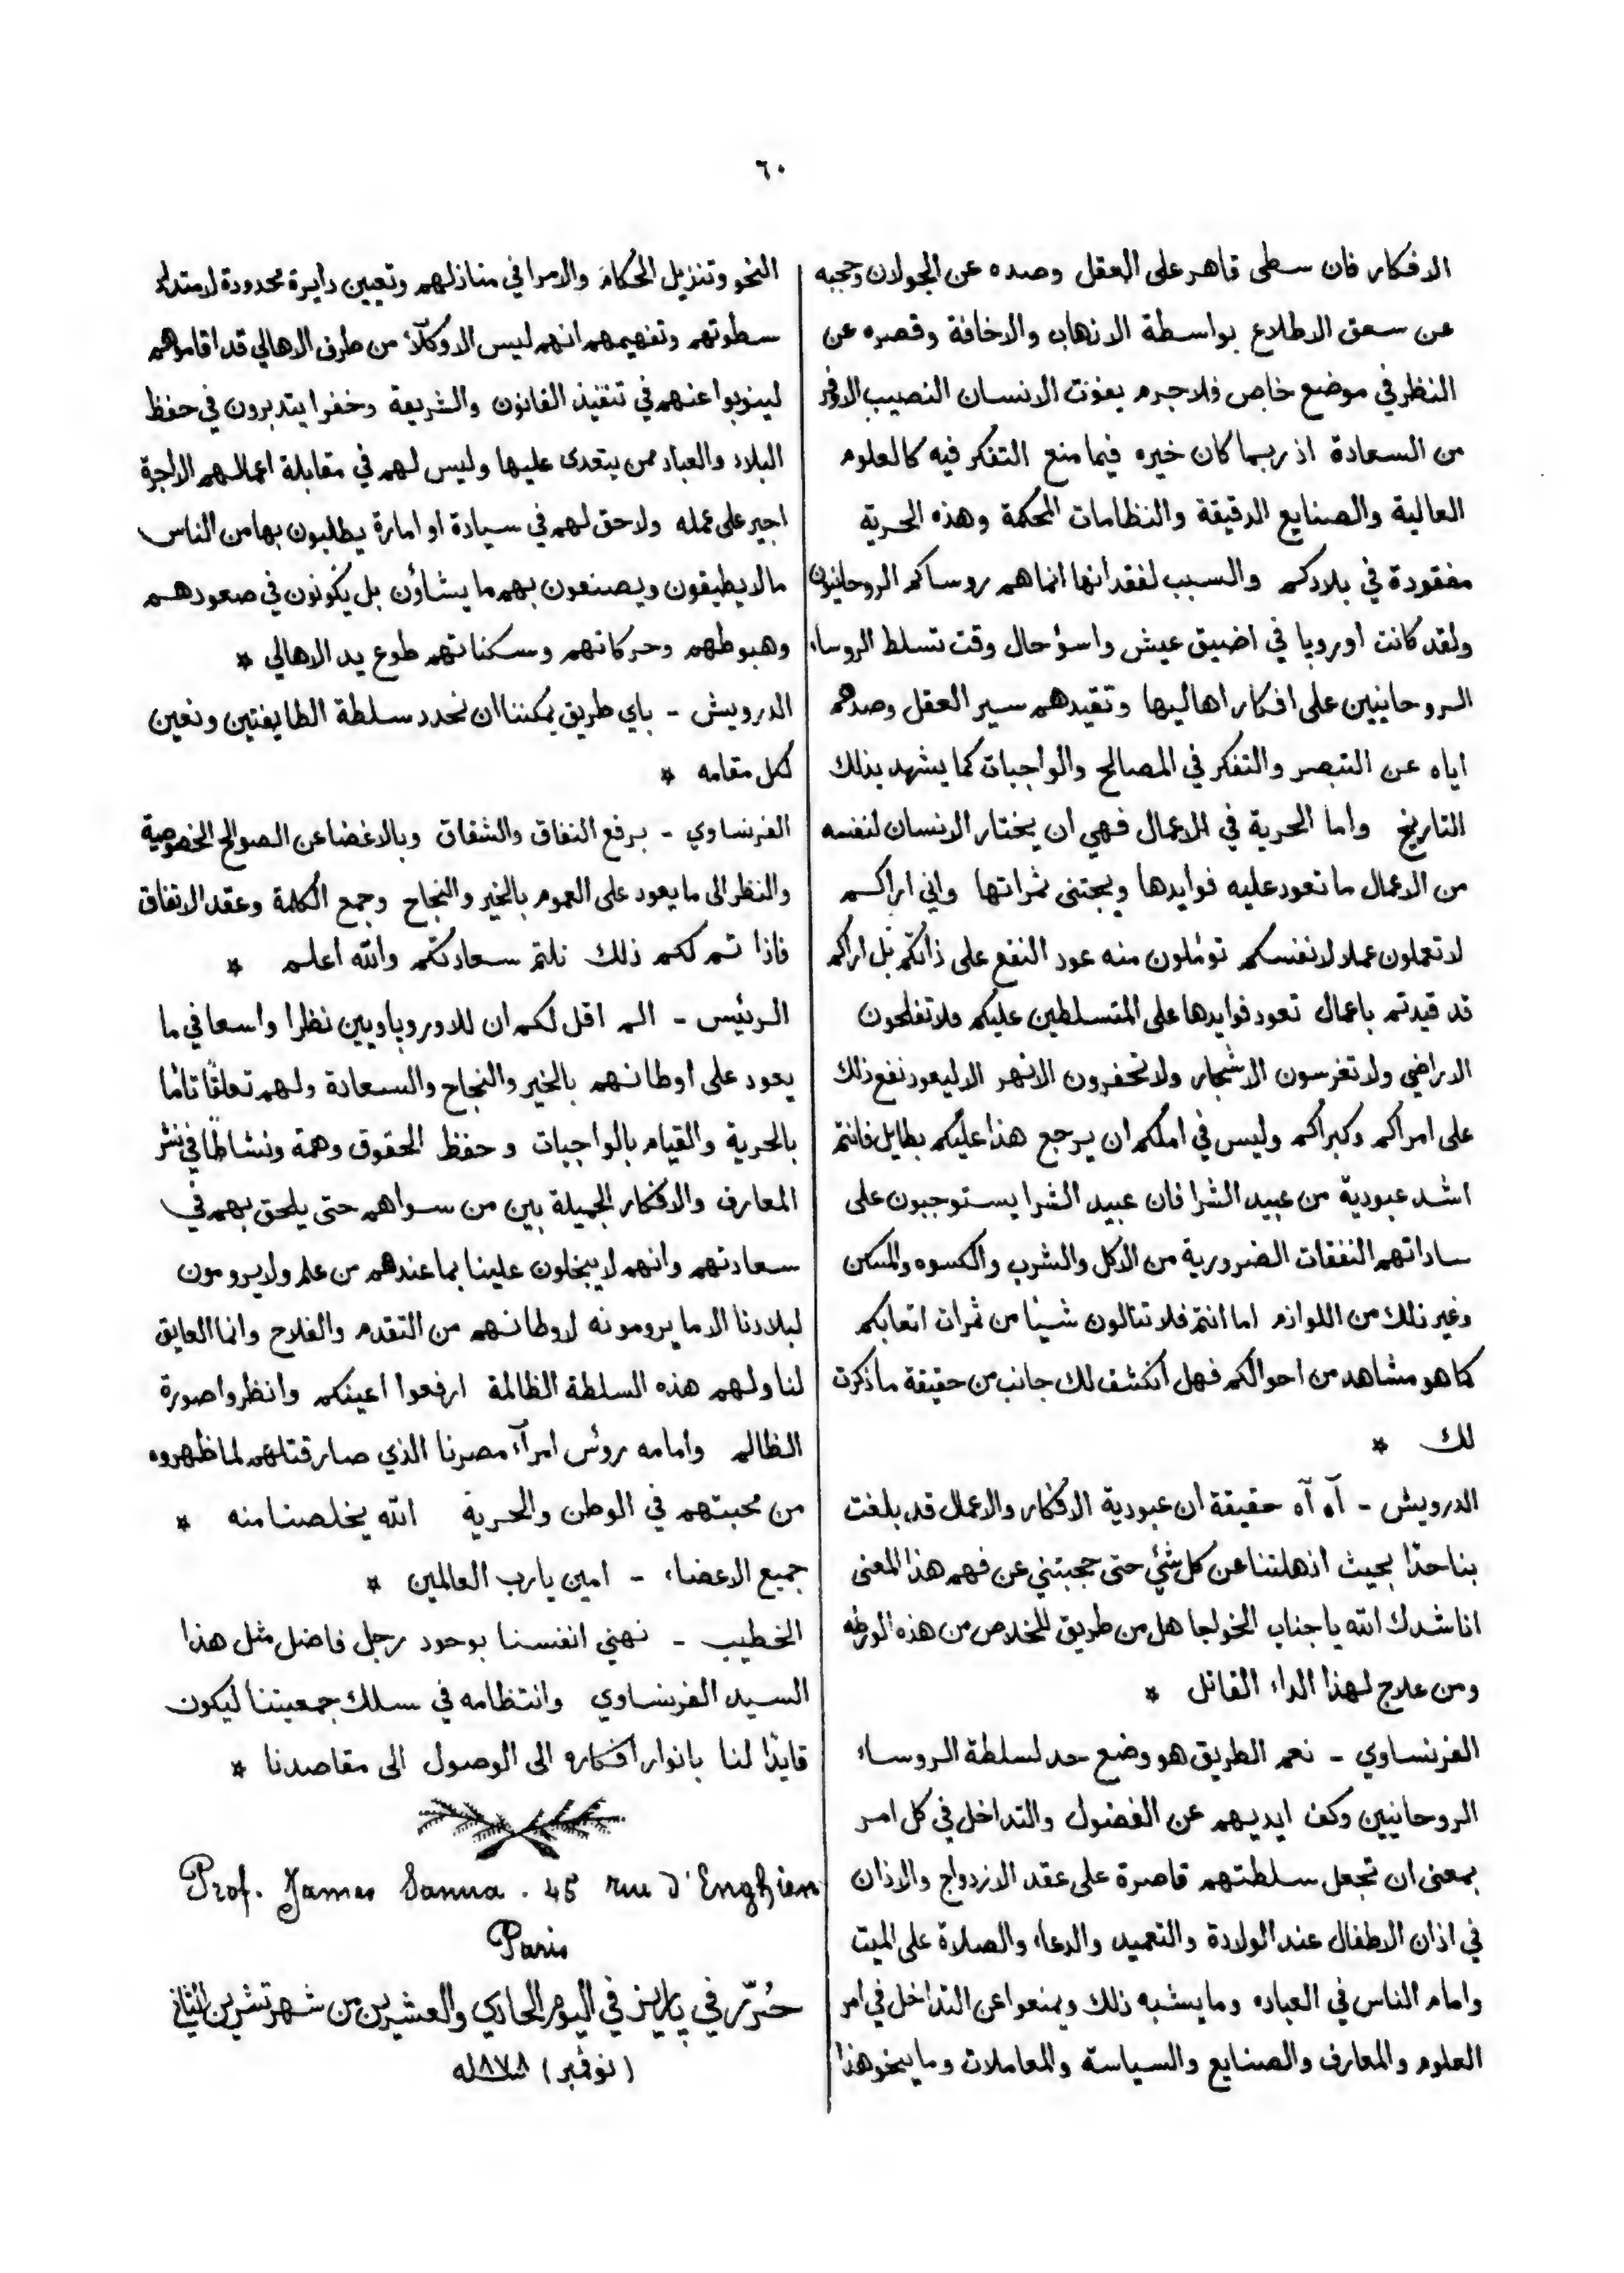 ٦٠
الافكار فان سطى قاهر على العقل وصده عن الجولان وحجبه
عن سعق الاطلاع بواسطة الارهاب والاخافة وقصره عن
النظر في موضع خاص فلاجرم يفوت الانسان النصيب الاوفر
من السعادة اذ ربما كان خيره فيما منع التفكر فيه كالعلوم
العالية والصنايع الدقيقة والنظامات المحكمة وهذه الحرية
مفقودة في بلادكم والسبب لفقدانها انماهم روساكم الروحانيون
ولقد كانت اوروبا في اضيق عيش واسؤحال وقت تسلط الروساء
الروحانيين على افكار اهاليها وتقيدهم سير العقل وصدهم
اياه عن التبصر والتفكر في المصالح والواجبات كما يشهد بذلك
التاريخ واما الحرية في الاعمال فهي ان يختار الانسان لنفسه
من الاعمال ما تعود عليه فوايدها ويجتنى ثمراتها واني اراكم
لا تعملون عملا لانفسكم تؤملون منه عود النفع على ذاتكم بل اراكم
قد قيدتم باعمال تعود فوايدها على المتسلطين عليكم فلا تفلحون
الاراضي ولا تغرسون الاشجار ولا تحفرون الانهر الا ليعود نفع ذلك
على امراكم وكبراكم وليس في املكم ان يرجع هذا عليكم بطايل فانتم
اشد عبودية من عبيد الشرا فان عبيد الشرا يستوجبون على
ساداتهم النفقات الضرورية من الاكل والشرب والكسوه والمسكن
وغير ذلك من اللوازم اما انتم فلا تنالون شيئا من ثمرات اتعابكم
كما هو مشاهد من احوالكم فهل انكشف لك جانب من حقيقة ما ذكرت
لك *
الدرويش - آه آه حقيقة ان عبودية الافكار والاعمال قد بلغت
بنا حدًا بحيث اذهلتنا عن كل شئ حتى حجبتني عن فهم هذا المعنى
اناشدك الله يا جناب الخواجا هل من طريق للخلاص من هذه الورطه
ومن علاج لهذا الداء القاتل *
الفرنساوي - نعم الطريق هو وضع حد لسلطة الروساء
الروحانيين وكف ايديهم عن الفضول والتداخل في كل امر
بمعنى ان تجعل سلطتهم قاصرة على عقد الازدواج والاذان
في اذان الاطفال عند الولادة والتعميد والدعاء والصلاة على الميت
وامام الناس في العباده وما يشبه ذلك ويمنعوا عن التداخل في امر
العلوم والمعارف والصنايع والسياسة والمعاملات وما ينحو هذا
النحو وتنزيل الحكام والامرا في منازلهم وتعيين دايرة محدودة لامتداد
سطوتهم وتفهيمهم انهم ليس الا وكلآء من طرف الاهالي قد اقاموهم
لينوبوا عنهم في تنفيذ القانون والشريعة وخفرا يتدبرون في حفظ
البلاد والعباد ممن يتعدى عليها وليس لهم في مقابلة اعمالهم الا اجرة
اجير على عمله ولا حق لهم في سيادة او امارة يطلبون بها من الناس
ما لا يطيقون ويصنعون بهم ما يشاؤن بل يكونون في صعودهم
وهبوطهم وحركاتهم وسكناتهم طوع يد الاهالي *
الدرويش - باي طريق يمكننا ان نحدد سلطة الطايفتين ونعين
لكل مقامه *
الفرنساوي - برفع النفاق والشقاق وبالاغضا عن الصوالح الخصوصية
والنظر الى ما يعود على العموم بالخير والنجاح وجمع الكلمة وعقد الاتفاق
فاذا تم لكم ذلك نلتم سعادتكم والله اعلم *
الرئيس - الم اقل لكم ان للاوروپاويين نظرا واسعا في ما
يعود على اوطانهم بالخير والنجاح والسعادة ولهم تعلقًا تامًا
بالحرية والقيام بالواجبات وحفظ الحقوق وهمة ونشاطًا في نشر
المعارف والافكار الجميلة بين من سواهم حتى يلحق بهم في
سعادتهم وانهم لا يبخلون علينا بما عندهم من علم ولا يرومون
لبلادنا الا ما يرومونه لاوطانهم من التقدم والفلاح وانما العايق
لنا ولهم هذه السلطة الظالمة ارفعوا اعينكم وانظروا صورة
الظالم وامامه روس امرآء مصرنا الذي صار قتلهم لما ظهروه
من محبتهم في الوطن والحرية الله يخلصنا منه *
جميع الاعضاء - امين يارب العالمين *
الخطيب - نهني انفسنا بوحود رجل فاضل مثل هذا
السيد الفرنساوي وانتظامه في سلك جمعيتنا ليكون
قايدًا لنا بانوار افكاره الى الوصول الى مقاصدنا *
Prof. James Sanua. 45 rue d'Enghien
Paris
حُرّر في پاريز في اليوم الحادي والعشرين من شهر تشرين الثاني
(نوڤمبر) سنة ١٨٧٨